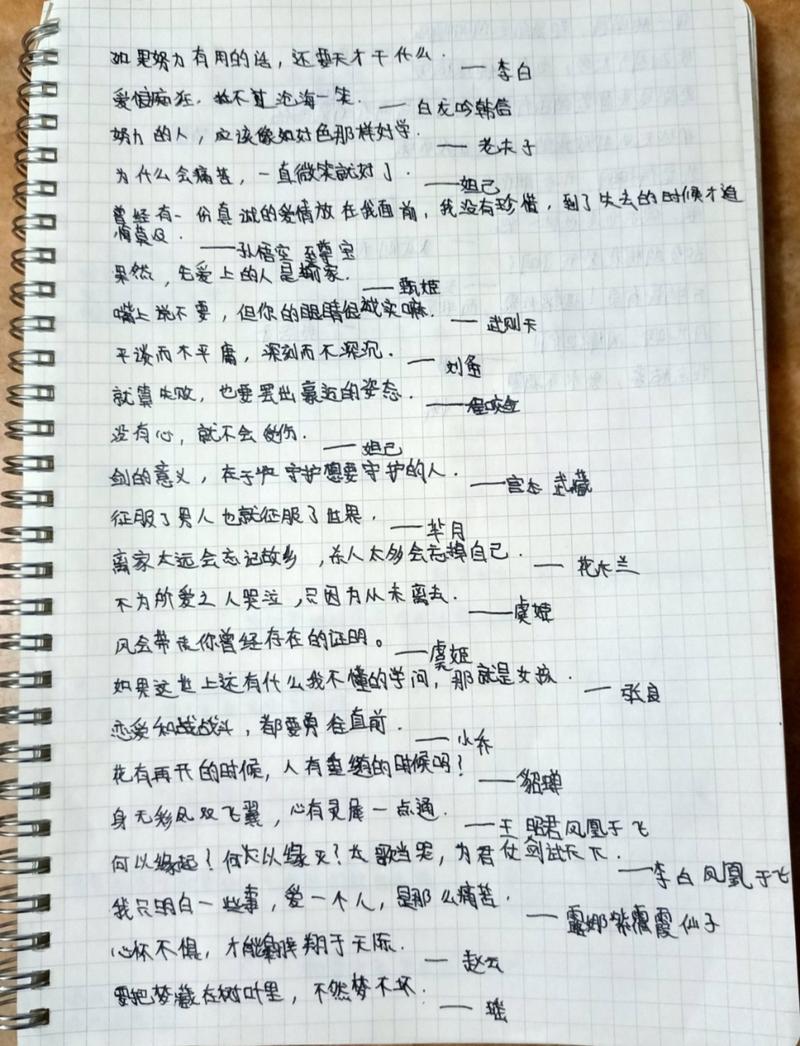 如果努力有用的话，还要天才干什么． —— 李白
爱恨痴狂，敌不过沧海一笑． —— 白龙吟韩信
努力的人，应该像如好色那样好学． —— 老夫子
为什么会痛苦，一直微笑就好了． —— 妲己
曾经有一份真诚的爱情放在我面前，我没有珍惜，到了失去的时候才追
悔莫及． —— 孙悟空 至尊宝
果然，先爱上的人是输家． —— 甄姬
嘴上说不要，但你的眼睛很诚实嘛． —— 武则天
平淡而不平庸，深刻而不深沉． —— 刘备
就算失败，也要摆出豪迈的姿态． —— 程咬金
没有心，就不会受伤． —— 妲己
剑的意义，在于守护想要守护的人． —— 宫本 武藏
征服了男人也就征服了世界． —— 芈月
离家太远会忘记故乡，杀人太多会忘掉自己． —— 花木兰
不为所爱之人哭泣，只因为从未离去． —— 虞姬
风会带走你曾经存在的证明。 —— 虞姬
如果这世上还有什么我不懂的学问，那就是女孩． —— 张良
恋爱和战战斗，都要勇往直前． —— 小乔
花有再开的时候，人有重逢的时候吗？ —— 貂蝉
身无彩凤双飞翼，心有灵犀一点通． —— 王昭君凤凰于飞
何以缘起？何以缘灭？长歌当哭，为君仗剑试天下． —— 李白 凤凰于飞
我只明白一些事，爱一个人，是那么痛苦． —— 露娜紫霞仙子
心怀不惧，才能翱翔于天际． —— 赵云
要把梦藏在树叶里，不然梦不坏． —— 瑶